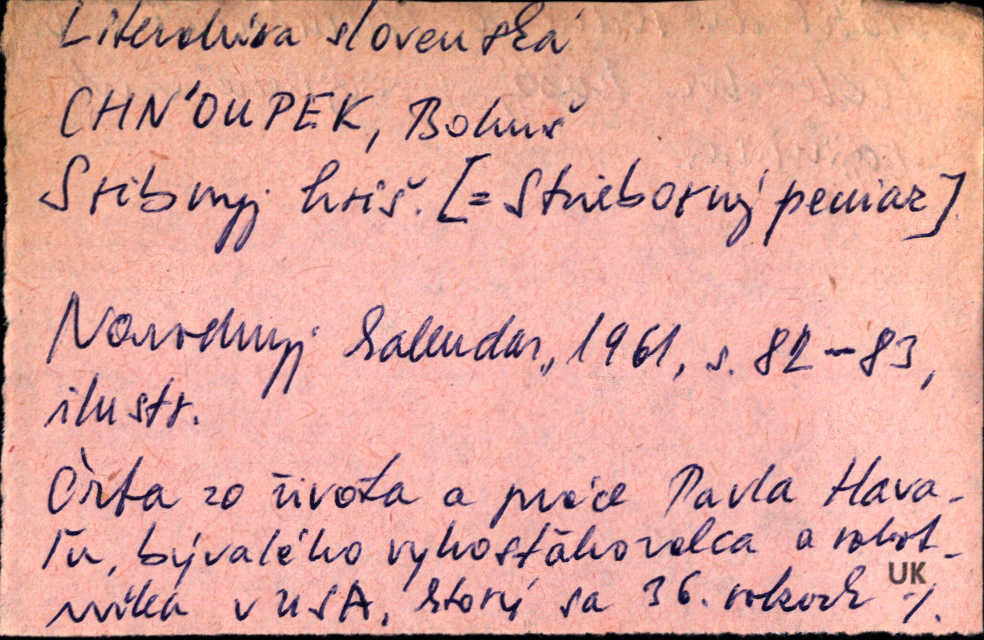 Literatúra slovenská
CHN'OUPEK, Bohuš
Sribnyj hriš. [= Strieborný peniaz]
Narodnyj kalendar, 1961, s. 82-83,
ilustr.
Črta zo života a práce Pavla Hava-
ľu, bývalého vysťahovalca a robot-
níka v USA, ktorý sa 36. rokoch ·/.
UK